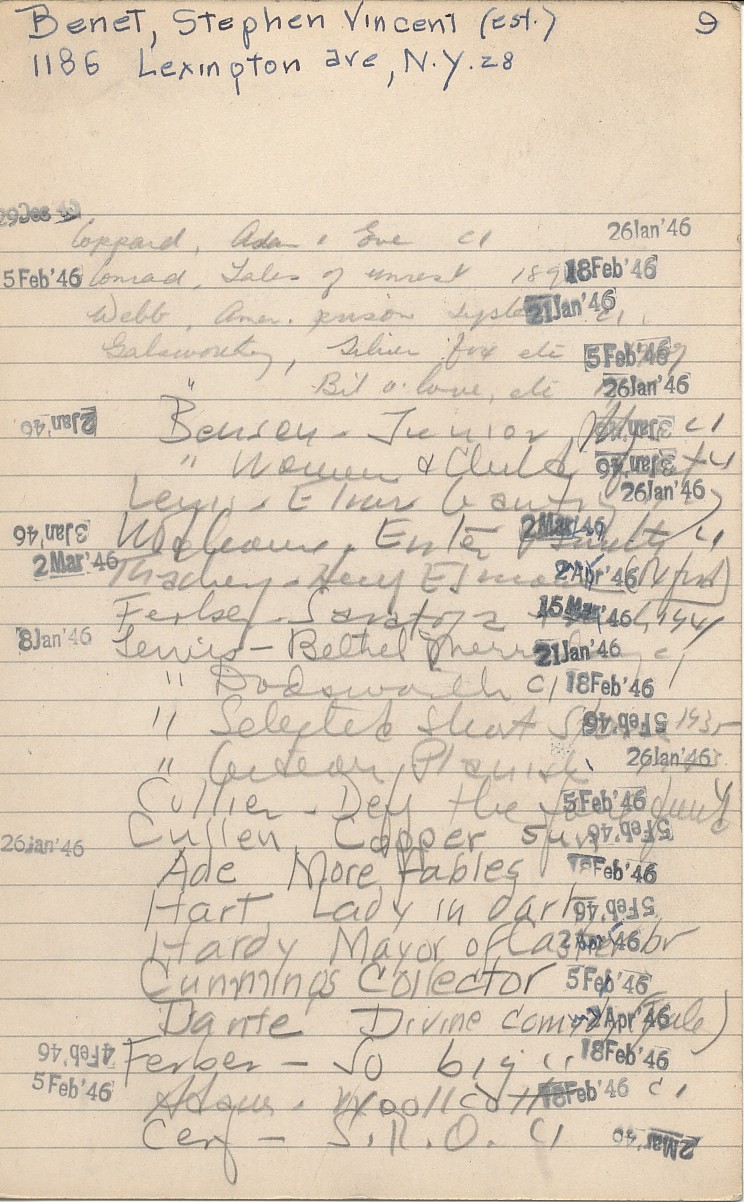 Benet, Stephen Vincent (est.) 9
1186 Lexington ave, N.Y. 28
29Dec
Coppard, Adam & Eve c1 26Jan'46
5Feb'46 Conrad, Tales of unrest 189 18Feb'46
Webb, Amer. prison system 21Jan'46 c1
Galsworthy, Silver fox etc 5Feb'46
" Bit o' love, etc 26Jan'46
2Jan'46 Benson - Junior c1
" Women & Child 3Jan'46
Lewis - Elmer Gantry 26Jan'46
3Jan'46 Enter 2Mar'46 c1
2Mar'46 Thackeray - Henry Esmond 2Apr'46
Ferber - Saratoga 15Mar'46 1941
8Jan'46 Lewis - Bethel Merriday 21Jan'46 c1
" Dodsworth c1 18Feb'46
" Selected short 5Feb'46 1935
" Gideon Planish 26Jan'46
Collier - Defy the foul fiend 5Feb'46
26Jan'46 Cullen Copper sun 5Feb'46
Ade More fables 18Feb'46
Hart Lady in dark 5Feb'46
Hardy Mayor of Casterbr 2Apr'46
Cummings Collector 5Feb'46
Dante Divine comedy 2Apr'46
4Feb'46 Ferber - So big c1 18Feb'46
5Feb'46 Adams - Woollcott 18Feb'46 c1
Cerf - S.R.O. c1 2Mar'46